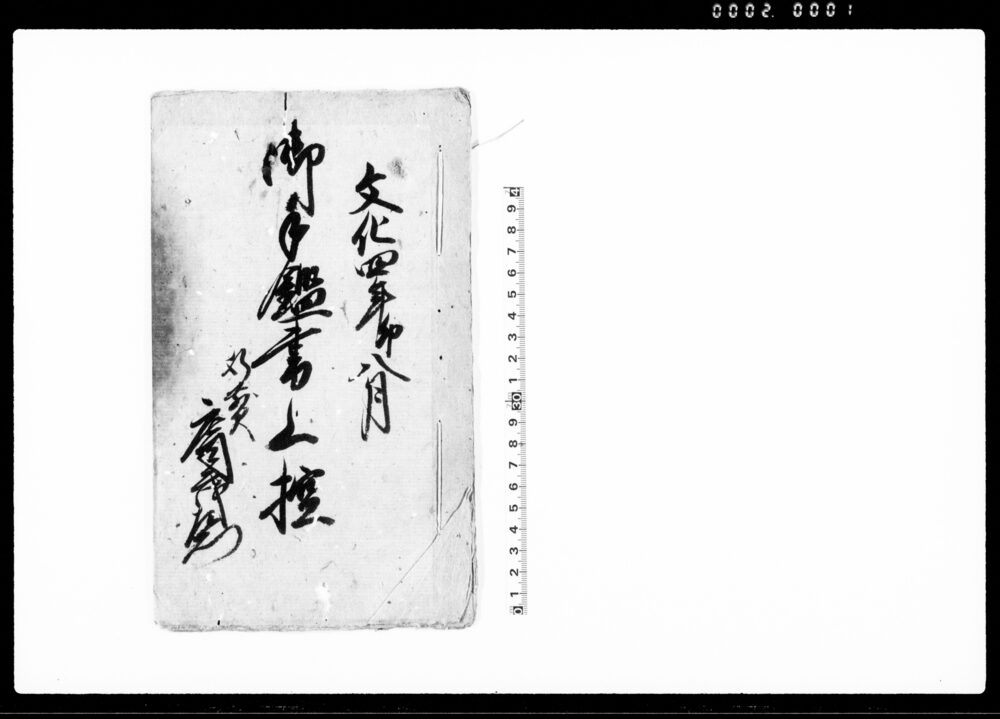 0002. 0001
文化四年卯八月
御手鑑書上控
0 1 2 3 4 5 6 7 8 9 30 1 2 3 4 5 6 7 8 9 4